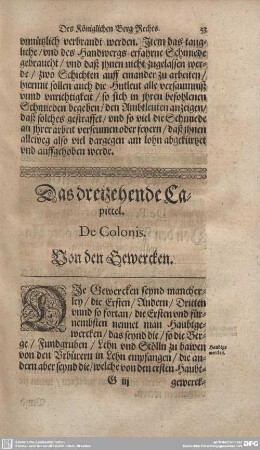 Des Königlichen Berg Rechts. 53
vnnützlich verbrandt werden. Item das taug-
liche / vnd des Handwergs erfahrne Schmiede
gebraucht / vnd daß jhnen nicht zugelassen wer-
de / zwo Schichten auff einander zu arbeiten /
hierumb sollen auch die Hutleut alle versaumnuß
vnnd vnrichtigkeit / so sich in jhren besoldenen
Schmieden begeben / den Ambtleuten anzeigen /
daß solches gestrafft / vnd so viel die Schmiede
an jhrer arbeit verseumen oder feyren / daß jhnen
alleweg also viel dargegen am lohn abgekürtzet
vnd auffgehoben werde.
Das dreizehende Ca-
pittel.
De Colonis.
Von den Gewercken.
DJe Gewercken seynd mancher-
ley / die Ersten / Andern / Dritten
vnnd so fortan / die Ersten vnd für-
nembsten nennet man Haubtge-
wercken / das seynd die / so die Ber-
ge / Fundgruben / Lehn vnd Stölln zu bawen
von den Vrbürern in Lehn empfangen / die an-
dern aber seynd die / welche von den ersten Haubt-
G iij gewerck-
Haubtge
wercken.